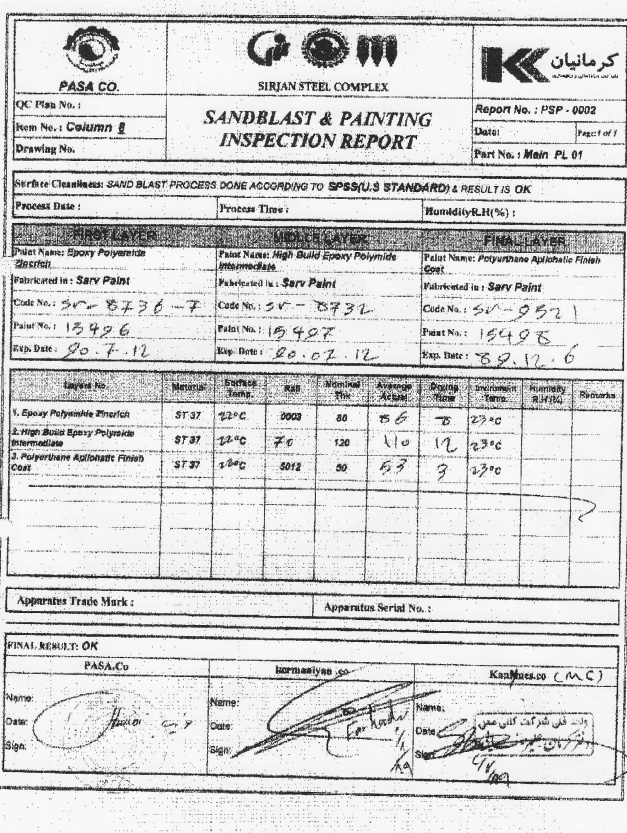 PASA CO.
SIRJAN STEEL COMPLEX
کرمانیان
QC Plan No. :
Item No. : Column 8
Drawing No.
SANDBLAST & PAINTING
INSPECTION REPORT
Report No. : PSP - 0002
Date:
Page: 1 of 1
Part No. : Main PL 01
Surface Cleanliness: SAND BLAST PROCESS DONE ACCORDING TO SPSS(U.S STANDARD) & RESULT IS OK
Process Date :
Process Time :
HumidityR.H(%) :
FIRST LAYER
MIDDLE LAYER
FINAL LAYER
Paint Name: Epoxy Polyamide
Zincrich
Paint Name: High Build Epoxy Polyimide
Intermediate
Paint Name: Polyurthane Apliohatic Finish
Coat
Fabricated in : Sarv Paint
Fabricated in : Sarv Paint
Fabricated in : Sarv Paint
Code No. : SV - 8736 - 7
Code No. : SV - 8732
Code No. : SV - 9521
Paint No. : 15496
Paint No. : 15497
Paint No. : 15498
Exp. Date : 90.7.12
Exp. Date : 90.02.12
Exp. Date : 89.12.6
Layers No. Material Surface Temp. Ral Nominal Thk Average Actual Drying Time Instrument Temp. Humidity R.H(%) Remarks
1. Epoxy Polyamide Zincrich ST 37 22°C 0003 80 86 8 23°C
2. High Build Epoxy Polyimide Intermediate ST 37 22°C 70 120 110 12 23°C
3. Polyurthane Apliohatic Finish Coat ST 37 22°C 5012 50 53 3 23°C
Apparatus Trade Mark :
Apparatus Serial No. :
FINAL RESULT: OK
PASA.Co
kermaniyan .co
(MC)
Name:
Name:
Name:
Date:
Date:
Date:
Sign:
Sign:
Sign: